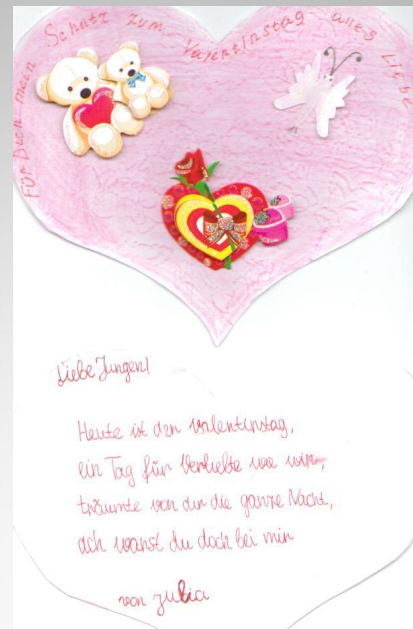 Für Dich mein Schatz zum Valentinstag alles Liebe
Liebe Jungen!
Heute ist der Valentinstag,
ein Tag für Verliebte wie wir,
träumte von dir die ganze Nacht,
ach wärst du doch bei mir
von Julia